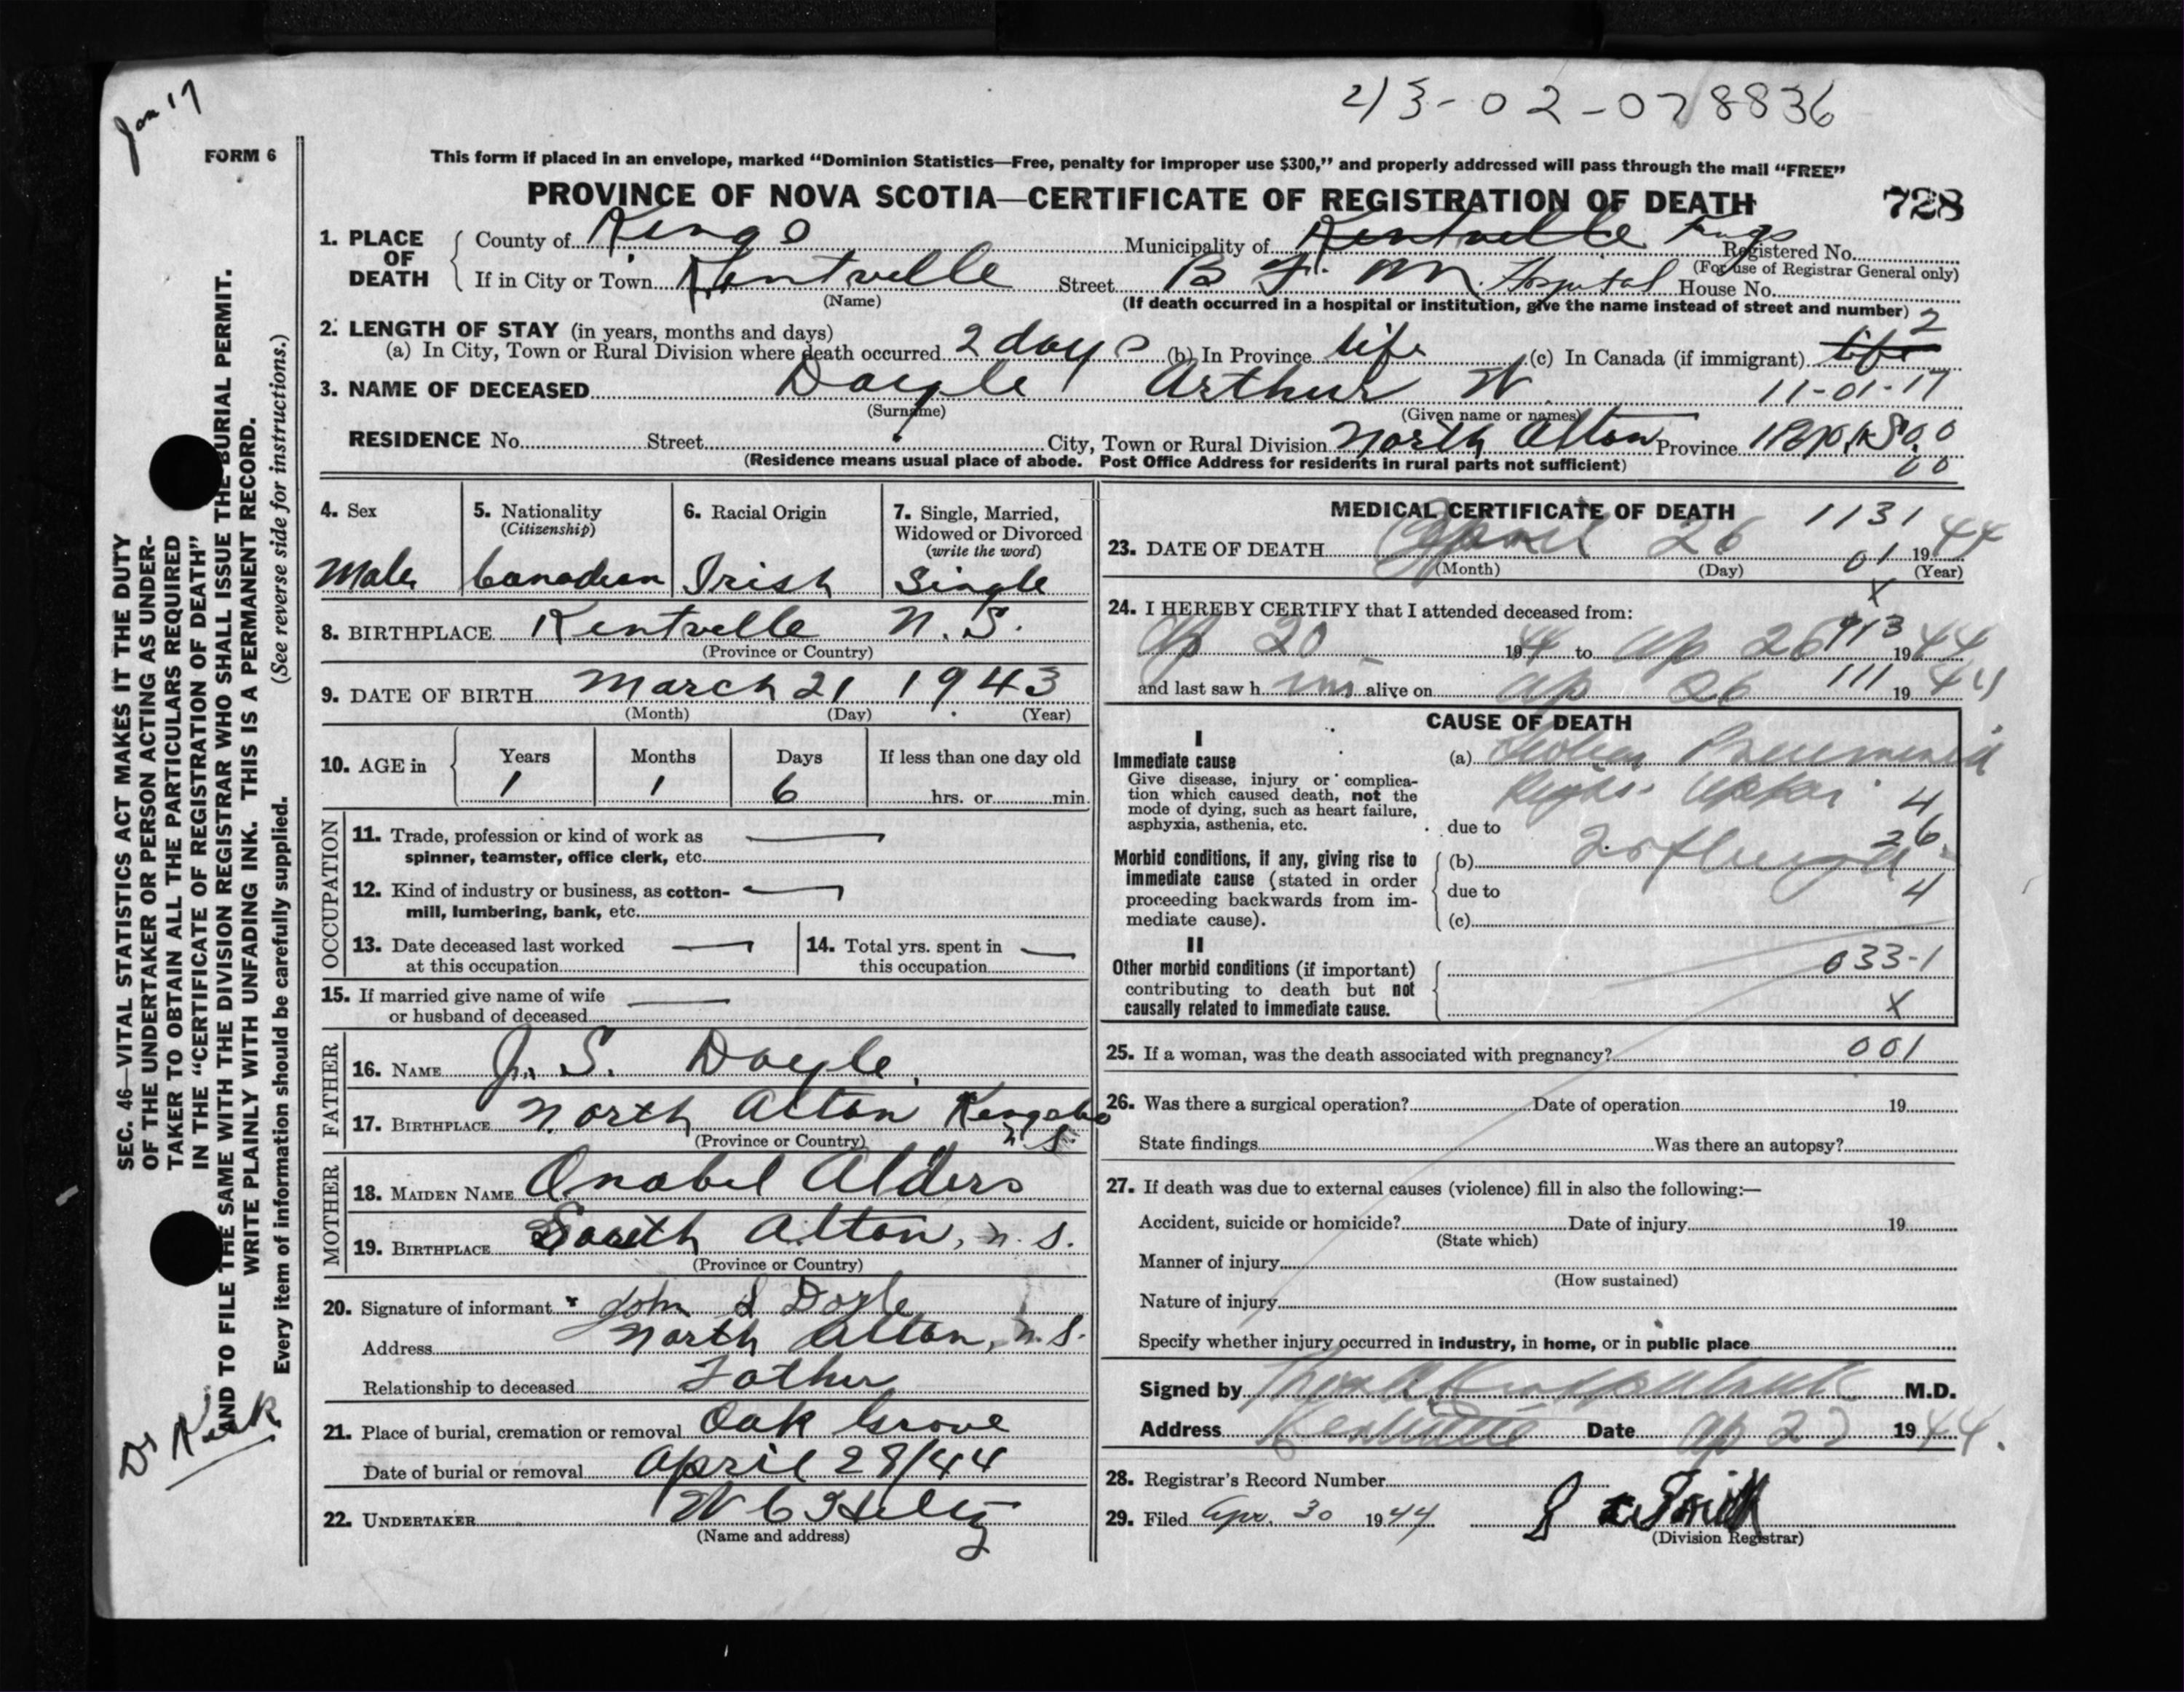 Jan 17
213-02-078836
FORM 6
This form if placed in an envelope, marked “Dominion Statistics—Free, penalty for improper use $300,” and properly addressed will pass through the mail “FREE”
PROVINCE OF NOVA SCOTIA—CERTIFICATE OF REGISTRATION OF DEATH 728
1. PLACE OF DEATH County of Kings Municipality of Kentville Kings Registered No.
(For use of Registrar General only)
If in City or Town Kentville Street B F. M. Hospital House No.
(Name) (If death occurred in a hospital or institution, give the name instead of street and number)
2. LENGTH OF STAY (in years, months and days) 2
(a) In City, Town or Rural Division where death occurred 2 days (b) In Province life (c) In Canada (if immigrant) life
3. NAME OF DECEASED Doyle Arthur W 11-01-17
(Surname) (Given name or names)
RESIDENCE No. Street City, Town or Rural Division North Alton Province
(Residence means usual place of abode. Post Office Address for residents in rural parts not sufficient)
4. Sex Male
5. Nationality (Citizenship) Canadian
6. Racial Origin Irish
7. Single, Married, Widowed or Divorced (write the word) Single
8. BIRTHPLACE Kentville N. S.
(Province or Country)
9. DATE OF BIRTH March 21 1943
(Month) (Day) (Year)
10. AGE in Years Months Days If less than one day old
1 1 6 hrs. or min.
OCCUPATION
11. Trade, profession or kind of work as
spinner, teamster, office clerk, etc.
12. Kind of industry or business, as cotton-
mill, lumbering, bank, etc.
13. Date deceased last worked
at this occupation
14. Total yrs. spent in
this occupation
15. If married give name of wife
or husband of deceased
FATHER
16. NAME J. S. Doyle
17. BIRTHPLACE North Alton Kings Co
N S.
(Province or Country)
MOTHER
18. MAIDEN NAME Anabel Alders
19. BIRTHPLACE South Alton, N. S.
(Province or Country)
20. Signature of informant x John S Doyle
Address North Alton, N.S.
Relationship to deceased Father
21. Place of burial, cremation or removal Oak Grove
Date of burial or removal April 28/44
22. UNDERTAKER W C Hiltz
(Name and address)
MEDICAL CERTIFICATE OF DEATH 1131
23. DATE OF DEATH April 26 01 1944
(Month) (Day) (Year)
x
24. I HEREBY CERTIFY that I attended deceased from:
Ap 20 1944 to Ap 26 1944
and last saw h im alive on Ap 26 111 1944
CAUSE OF DEATH
I
Immediate cause
Give disease, injury or complica-
tion which caused death, not the
mode of dying, such as heart failure,
asphyxia, asthenia, etc.
(a) Lobar Pneumonia
Right 4
due to 26
Morbid conditions, if any, giving rise to
immediate cause (stated in order
proceeding backwards from im-
mediate cause).
(b)
due to 4
(c)
II
Other morbid conditions (if important)
contributing to death but not
causally related to immediate cause.
033-1
X
25. If a woman, was the death associated with pregnancy? 001
26. Was there a surgical operation? Date of operation 19
State findings Was there an autopsy?
27. If death was due to external causes (violence) fill in also the following:—
Accident, suicide or homicide? Date of injury 19
(State which)
Manner of injury
(How sustained)
Nature of injury
Specify whether injury occurred in industry, in home, or in public place
Signed by M.D.
Address Kentville Date Ap 27 1944.
28. Registrar’s Record Number
29. Filed Apr. 30 1944 Smith
(Division Registrar)
SEC. 46—VITAL STATISTICS ACT MAKES IT THE DUTY
OF THE UNDERTAKER OR PERSON ACTING AS UNDER-
TAKER TO OBTAIN ALL THE PARTICULARS REQUIRED
IN THE “CERTIFICATE OF REGISTRATION OF DEATH”
AND TO FILE THE SAME WITH THE DIVISION REGISTRAR WHO SHALL ISSUE THE BURIAL PERMIT.
WRITE PLAINLY WITH UNFADING INK. THIS IS A PERMANENT RECORD.
Every item of information should be carefully supplied. (See reverse side for instructions.)
Dr Kirk